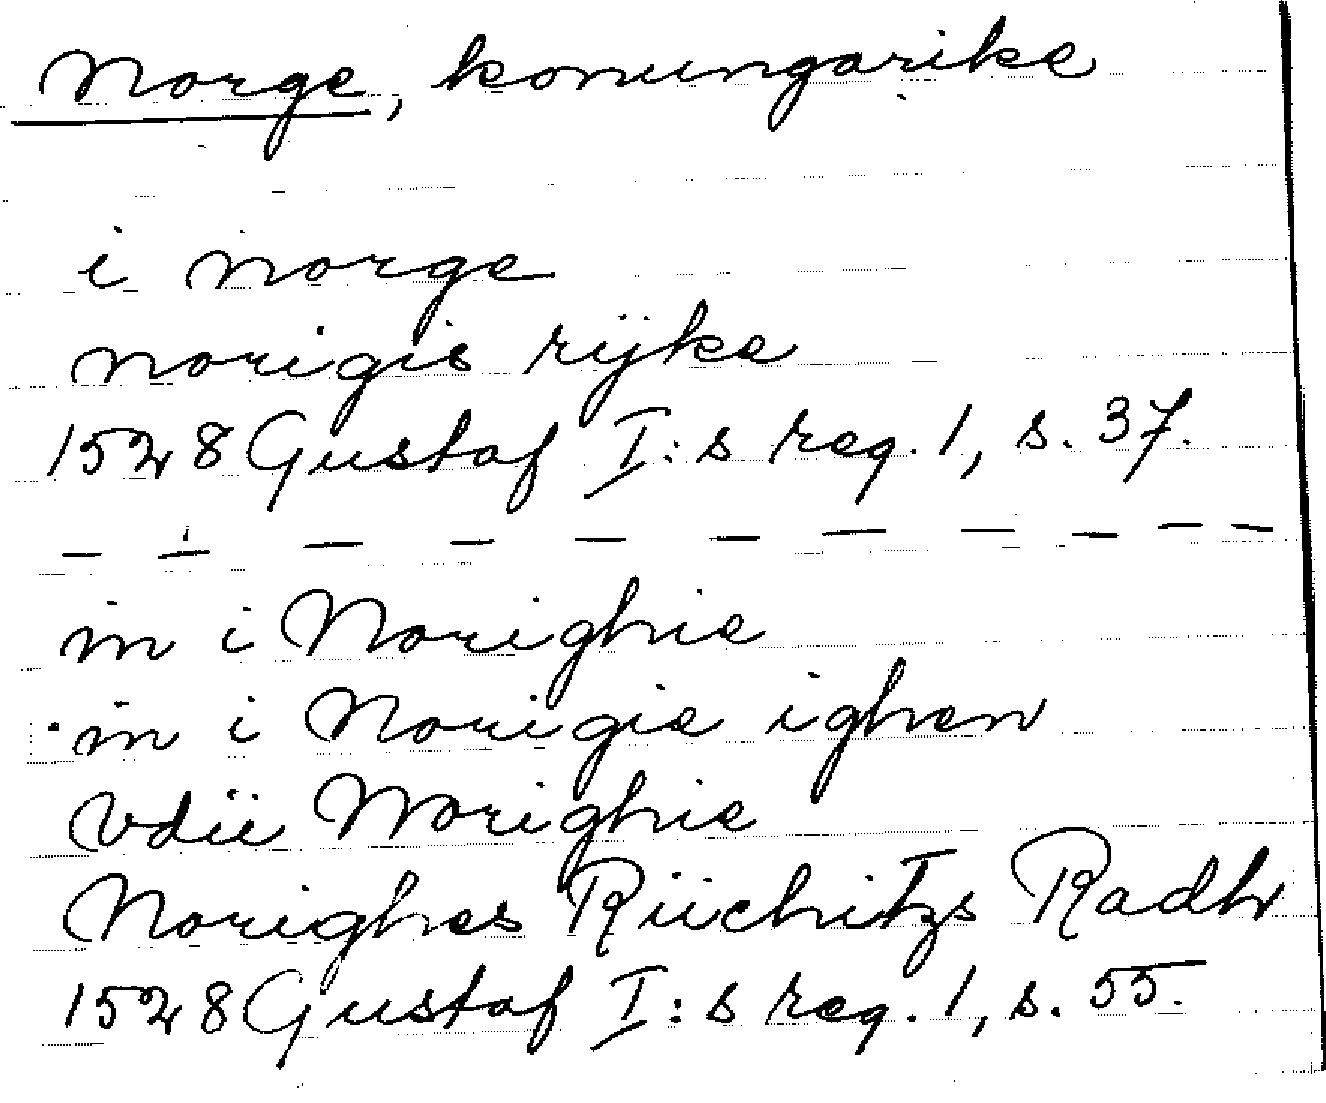 Norge, konungarike
i norge
norigis rijke
1528 Gustaf I:s reg. 1, s. 37.
— — — — — — — — — — —
in i Norighie
in i Norigie ighen
vdii Norighie
Norighes Riichitzs Radh
1528 Gustaf I:s reg. 1, s. 55.